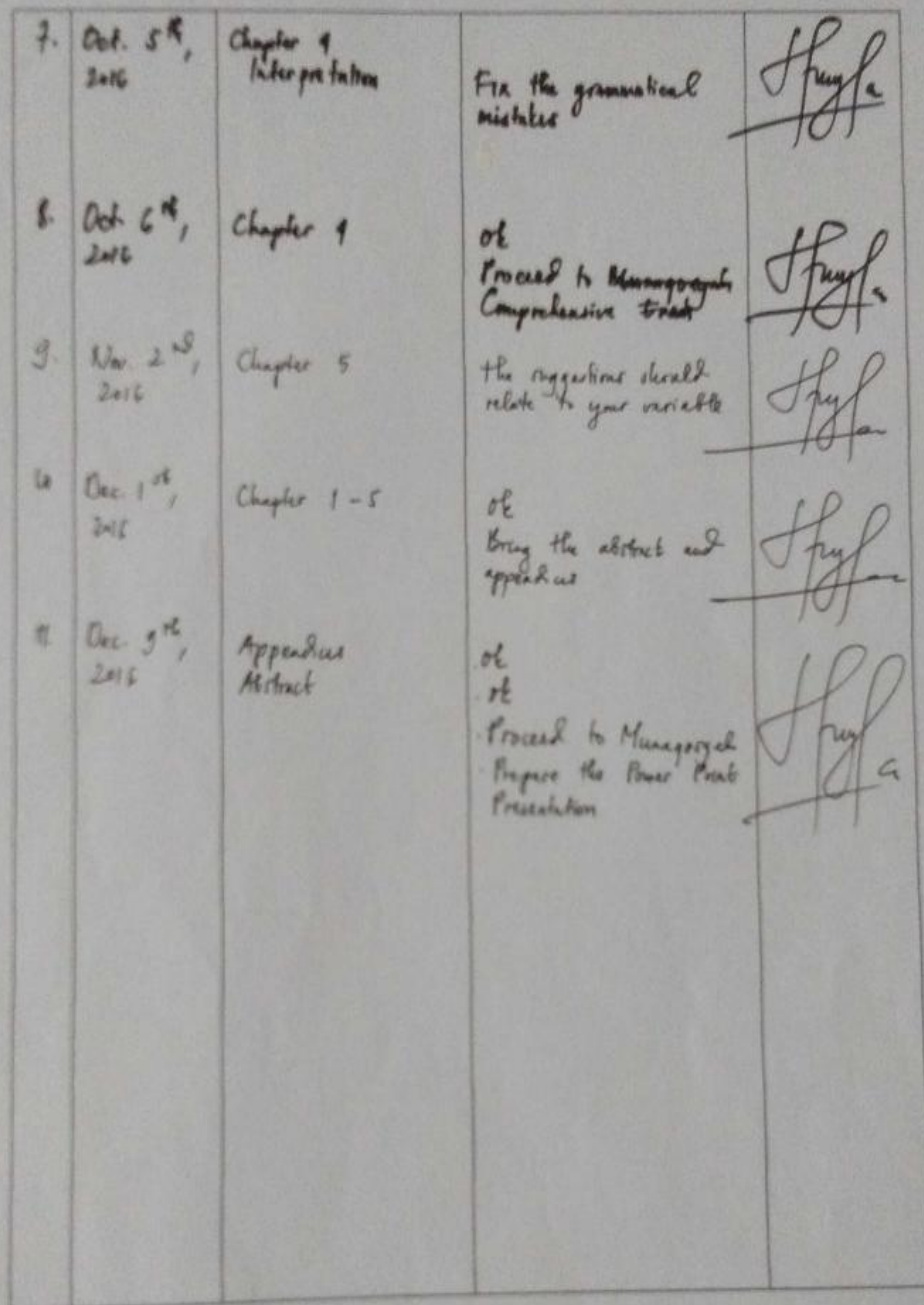 7. Oct. 5th, 2016
Chapter 4
Interpretation
Fix the grammatical
mistakes
8. Oct. 6th, 2016
Chapter 4
ok
Proceed to
Comprehensive
9. Nov. 2nd, 2016
Chapter 5
the suggestions should
relate to your variable
10 Dec. 1st, 2016
Chapter 1-5
ok
Bring the abstract and
appendices
11. Dec. 9th, 2016
Appendices
Abstract
ok
ok
Proceed to Munaqosyah
Prepare the Power Point
Presentation